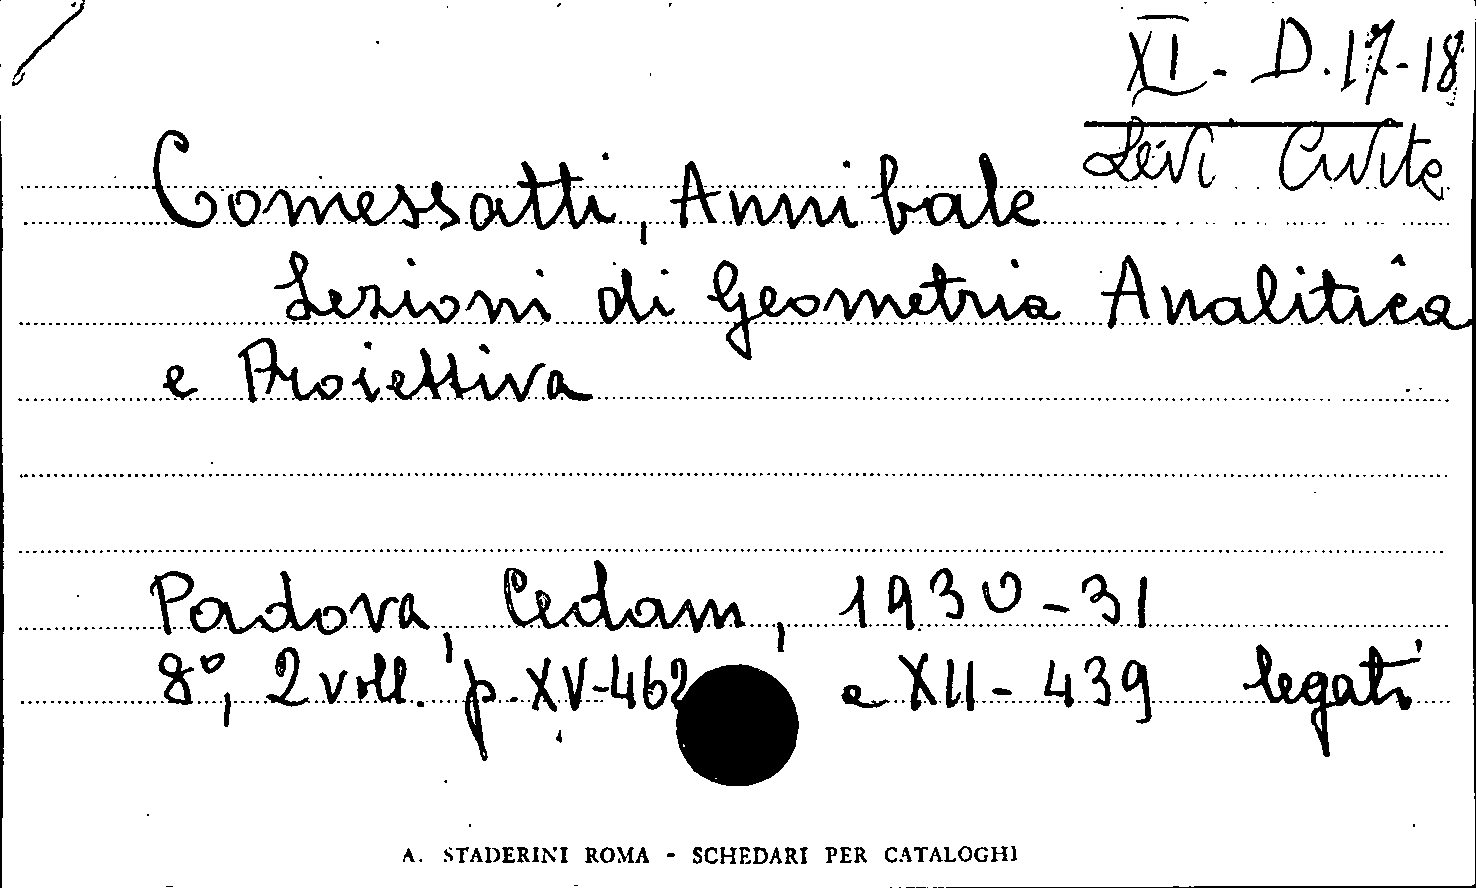 XI - D.17-18
Levi Civita
Comessatti, Annibale
Lezioni di Geometria Analitica
e Proiettiva
Padova, Cedam, 1930-31
8°, 2 voll. p. XV-462 e XII-439 legati
A. STADERINI ROMA - SCHEDARI PER CATALOGHI